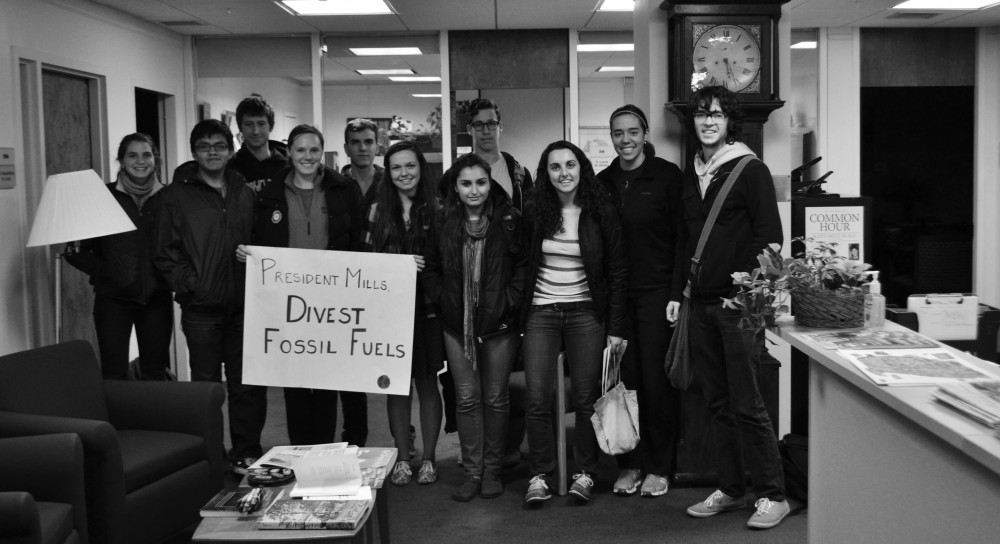 PRESIDENT MILLS,
DIVEST
FOSSIL FUELS
COMMON
HOUR